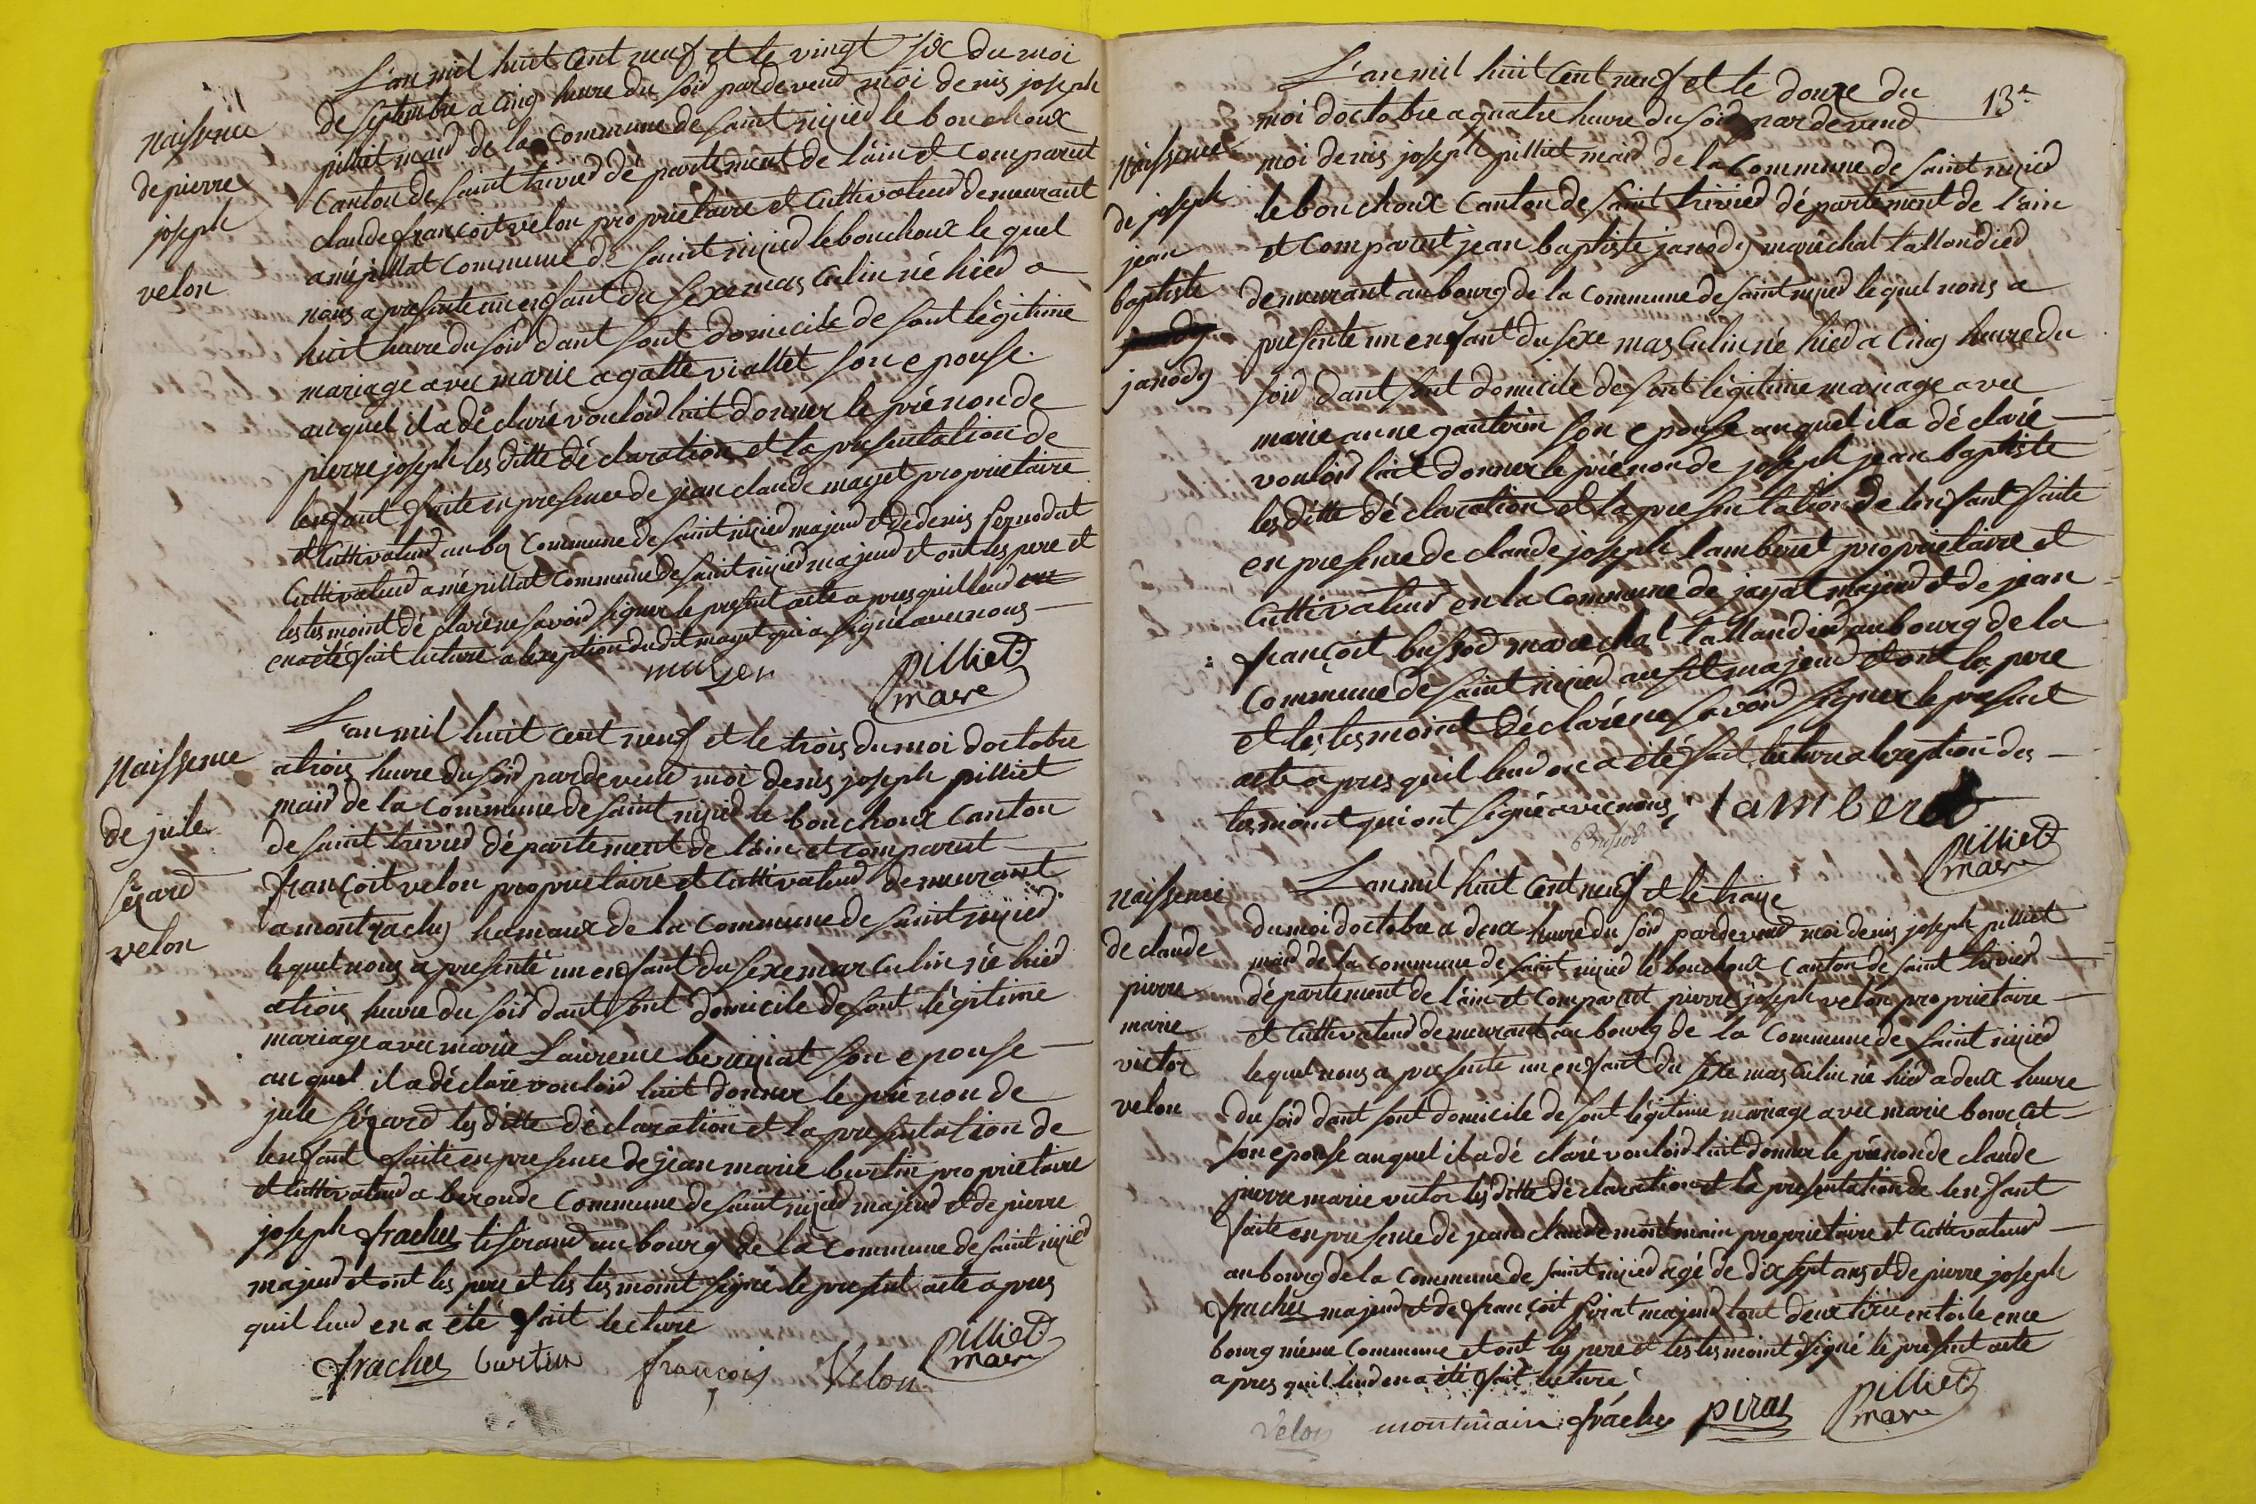 L'an mil huit Cent neuf et le vingt six du moi
de septembre a Cinq heure du soir pardevend moi denis joseph
pilliet maird de la Commune de saint nizied le bouchoux
Canton de saint trivied département de l'ain et Comparut
claude françoit velon proprietaire et Cultivateud demeurant
a mépillat Commune de saint nizied le bouchoux le quel
nous a presenté un enfant du sexe masculin né hied a
huit heure du soir dant sont domicile de sont légitime
mariage avec marie agatte viallet son epouse
auquel il a déclaré vouloird luit donner le prénon de
pierre joseph les ditte déclaration et la presentation de
lenfant faite en presence de jean claude mayet proprietaire
et Cultivateud au Commune de saint nizied majeud et de denis
Cultivateud a mépillat Commune de saint nizied majeud et ont les pere et
les tesmoint déclaré ne savoir signer le present acte apres quil leud en
en a été fait lecture a lexeption du dit mayet qui a signé avec nous
pilliet
mare
naissence
de pierre
joseph
velon
L'an mil huit Cent neuf et le trois du moi doctobre
a trois heure du soir pardevend moi denis joseph pilliet
maird de la Commune de saint nizied le bouchoux Canton
de saint trivied département de l'ain et Comparut
françoit velon proprietaire et Cultivateud demeurant
a hamaux de la Commune de saint nizied
lequel nous a presenté un enfant du sexe masculin né hied
a trois heure du soir dant sont domicile de sont légitime
mariage avec marie Laurence son epouse
auquel il a déclaré vouloird luit donner le prénon de
jule sézard les ditte déclaration et la presentation de
lenfant faite en presence de jean marie burtin proprietaire
et Cultivateud a beronde Commune de saint nizied majeud et de pierre
joseph frachet tiserand au bourg de la Commune de saint nizied
majeud et ont les pere et les tesmoint signé le present acte apres
quil leud en a été fait lecture
frachet burtin françois Velon
pilliet
mare
naissence
de jule
sézard
velon
13e
L'an mil huit Cent neuf et le douze du
moi doctobre a quatre heure du soir pardevend
moi denis joseph pilliet maird de la Commune de saint nizied
le bouchoux Canton de saint trivied département de l'ain
et Comparut jean baptiste janody maréchal tallandied
demeurant au bourg de la Commune de saint nizied lequel nous a
presenté un enfant du sexe masculin né hied a Cinq heure du
soir dant sont domicile de sont légitime mariage avec
marie anne son epouse auquel il a déclaré
vouloird luit donner le prénon de joseph jean baptiste
les ditte déclaration et la presentation de lenfant faite
en presence de claude joseph lamberet proprietaire et
Cultivateud en la Commune de jayat majeud et de jean
françoit bussod marechal tallandied au bourg de la
Commune de saint nizied majeud et ont la pere
et les tesmoint déclaré ne savoir signer le present
acte apres quil leud en a été fait lecture a lexeption des
tesmoint qui ont signé avec nous
lamberet
bussod
pilliet
mare
naissence
de joseph
jean
baptiste
janody
L'an mil huit Cent neuf et le traize
du moi doctobre a deux heure du soir pardevend moi denis joseph pilliet
maird de la Commune de saint nizied le bouchoux Canton de saint trivied
département de l'ain et Comparut pierre joseph velon proprietaire
et Cultivateud demeurant au bourg de la Commune de saint nizied
lequel nous a presenté un enfant du sexe masculin né hied a deux heure
du soir dant sont domicile de sont légitime mariage avec marie
son epouse auquel il a déclaré vouloird luit donner le prénon de claude
pierre marie victor les ditte déclaration et la presentation de lenfant
faite en presence de jean claude montmain proprietaire et Cultivateud
au bourg de la Commune de saint nizied agé de dix sept ans et de pierre joseph
frachet majeud et de françoit pirat majeud tout deux en toile en ce
bourg même Commune et ont les pere et les tesmoint signé le present acte
apres quil leud en a été fait lecture
velon montmain frachet pirat
pilliet
mare
naissence
de claude
pierre
marie
victor
velon